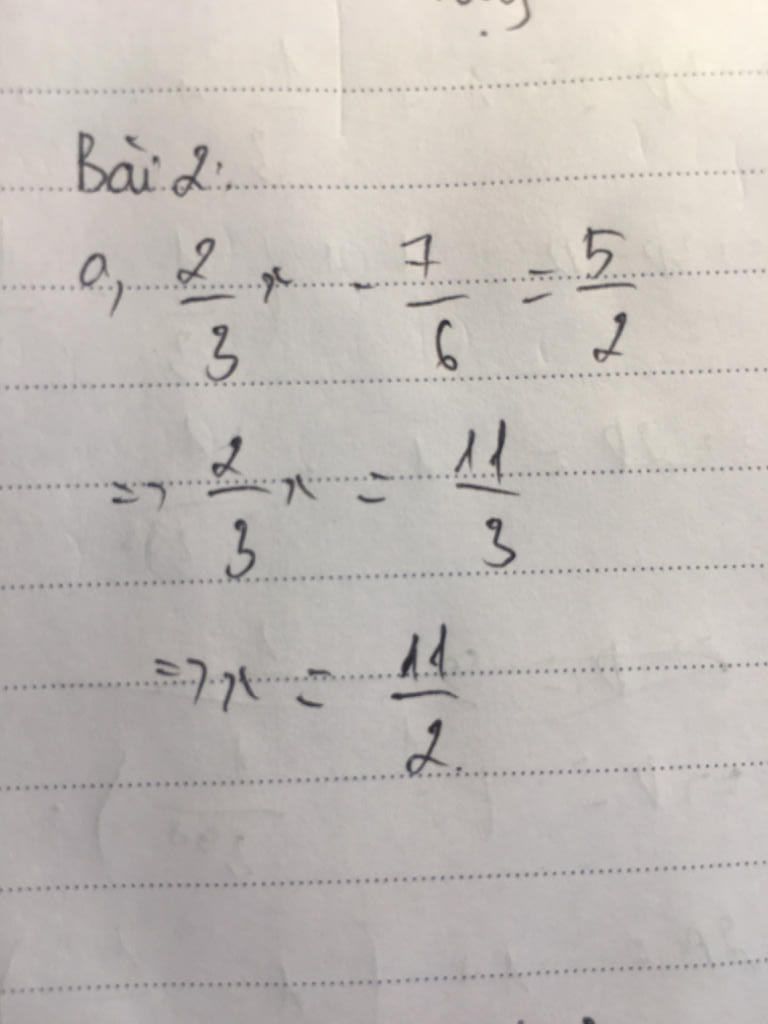 Bài 2:
a, 2/3 x - 7/6 = 5/2
=> 2/3 x = 11/3
=> x = 11/2.